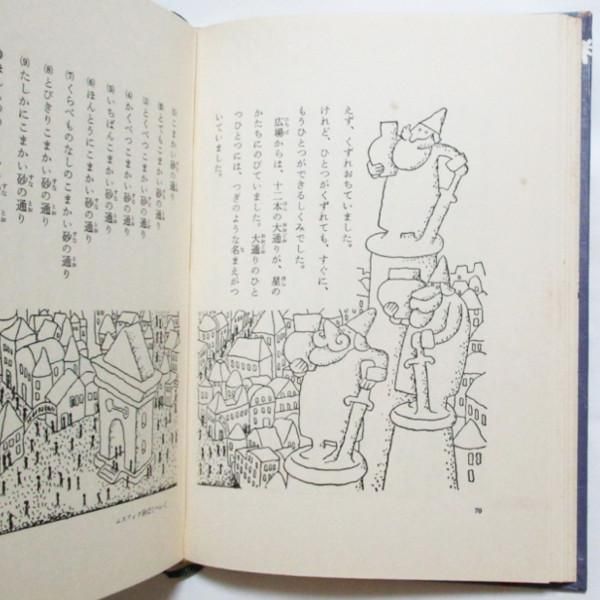 えず、くずれおちていました。
けれど、ひとつがくずれても、すぐに、
もうひとつができるしくみでした。
広場からは、十二本の大通りが、星の
かたちにのびていました。大通りのひと
つひとつには、つぎのような名まえがつ
いていました。
70
(1)こまかい砂の通り
(2)とてもこまかい砂の通り
(3)とくべつこまかい砂の通り
(4)かくべつこまかい砂の通り
(5)いちばんこまかい砂の通り
(6)ほんとうにこまかい砂の通り
(7)くらべものなしのこまかい砂の通り
(8)とびきりこまかい砂の通り
(9)たしかにこまかい砂の通り